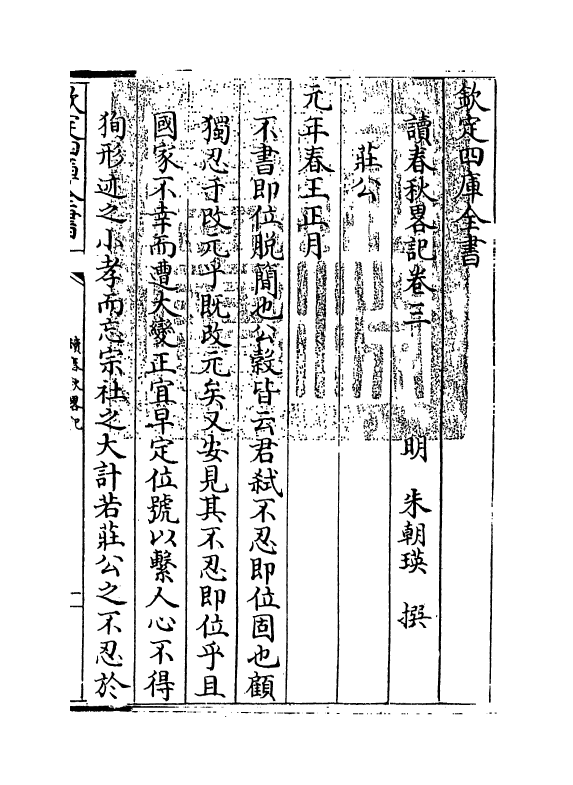 欽定四庫全書
讀春秋畧記卷三　明　朱朝瑛　撰
莊公
元年春王正月
不書即位脱簡也公穀皆云君弑不忍即位固也顧
獨忍于改元乎既改元矣又安見其不忍即位乎且
國家不幸而遭大變正宜早定位號以繫人心不得
狥形迹之小孝而忘宗社之大計若莊公之不忍於
欽定四庫全書
讀春秋畧記